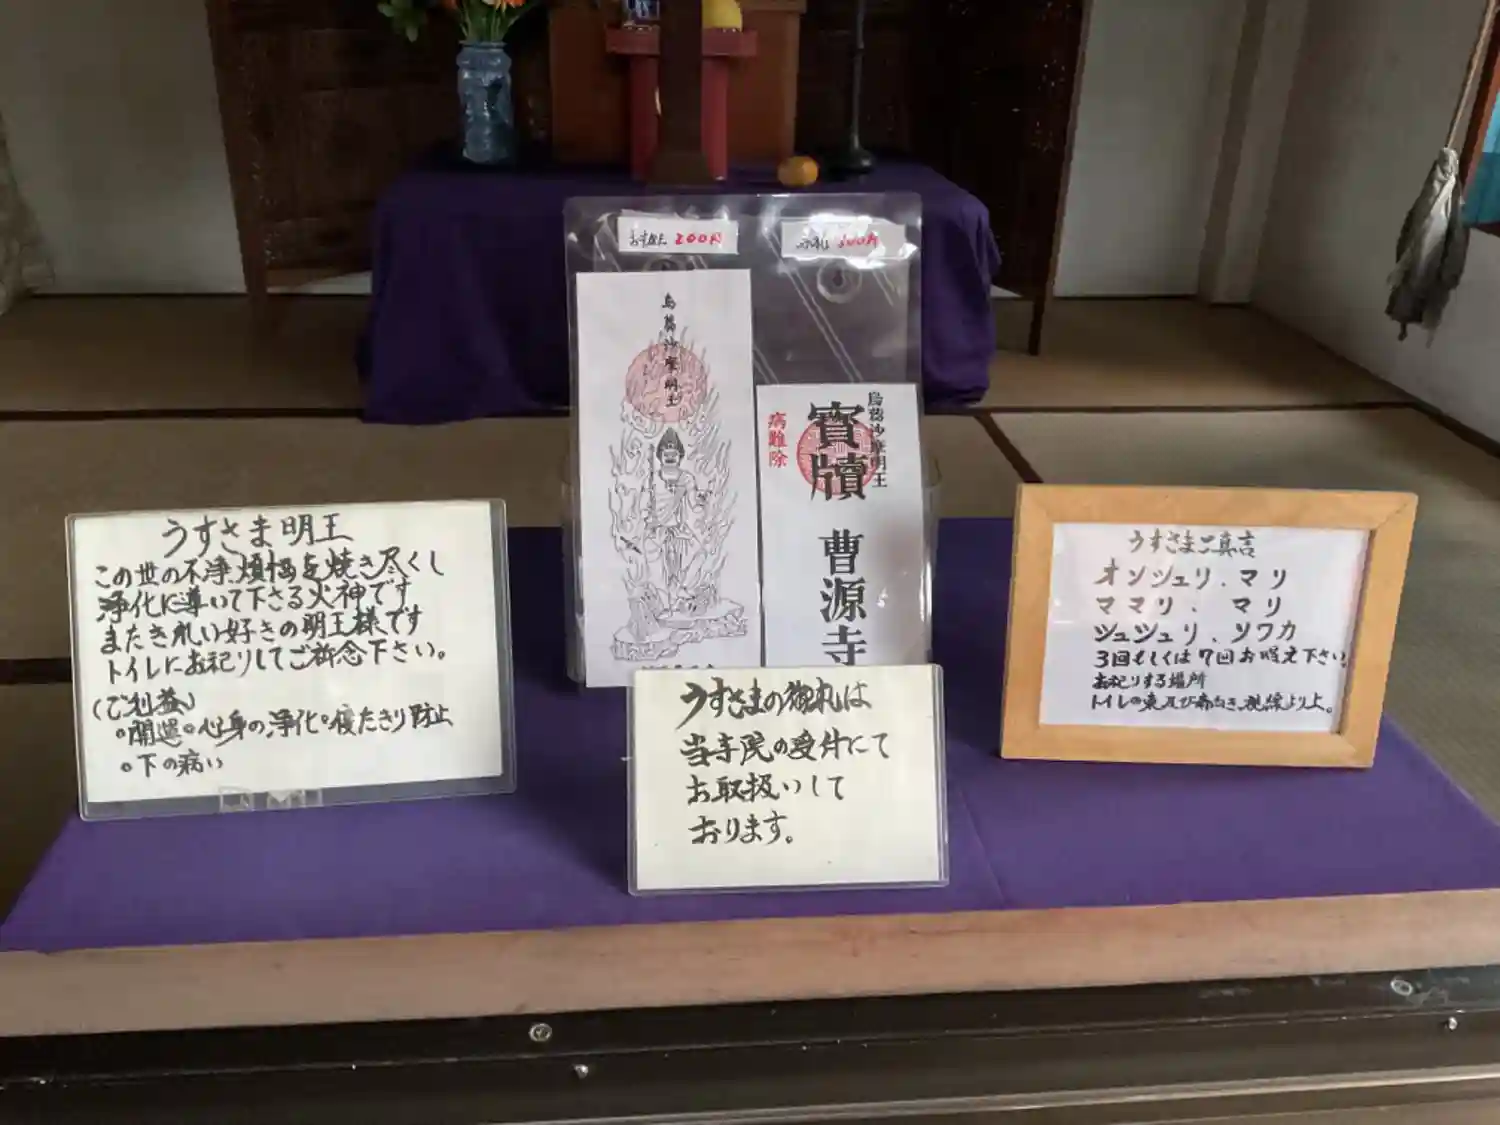 うすさま明王
この世の不浄、煩悩を焼き尽くし
浄化に導いて下さる火神です
またきれい好きの明王様です
トイレにお祀りしてご祈念下さい。
(ご利益)
○開運○心身の浄化○寝たきり防止
○下の病い
200円
烏蒭沙摩明王
烏蒭沙摩明王
寶牘
病難除
曹源寺
うすさまの御札は
当寺院の受付にて
お取扱いして
おります。
うすさまご真言
オンシュリ、マリ
ママリ、マリ
シュシュリ、ソワカ
3回もしくは7回お唱え下さい。
お祀りする場所
トイレの東及び南向き、視線より上。